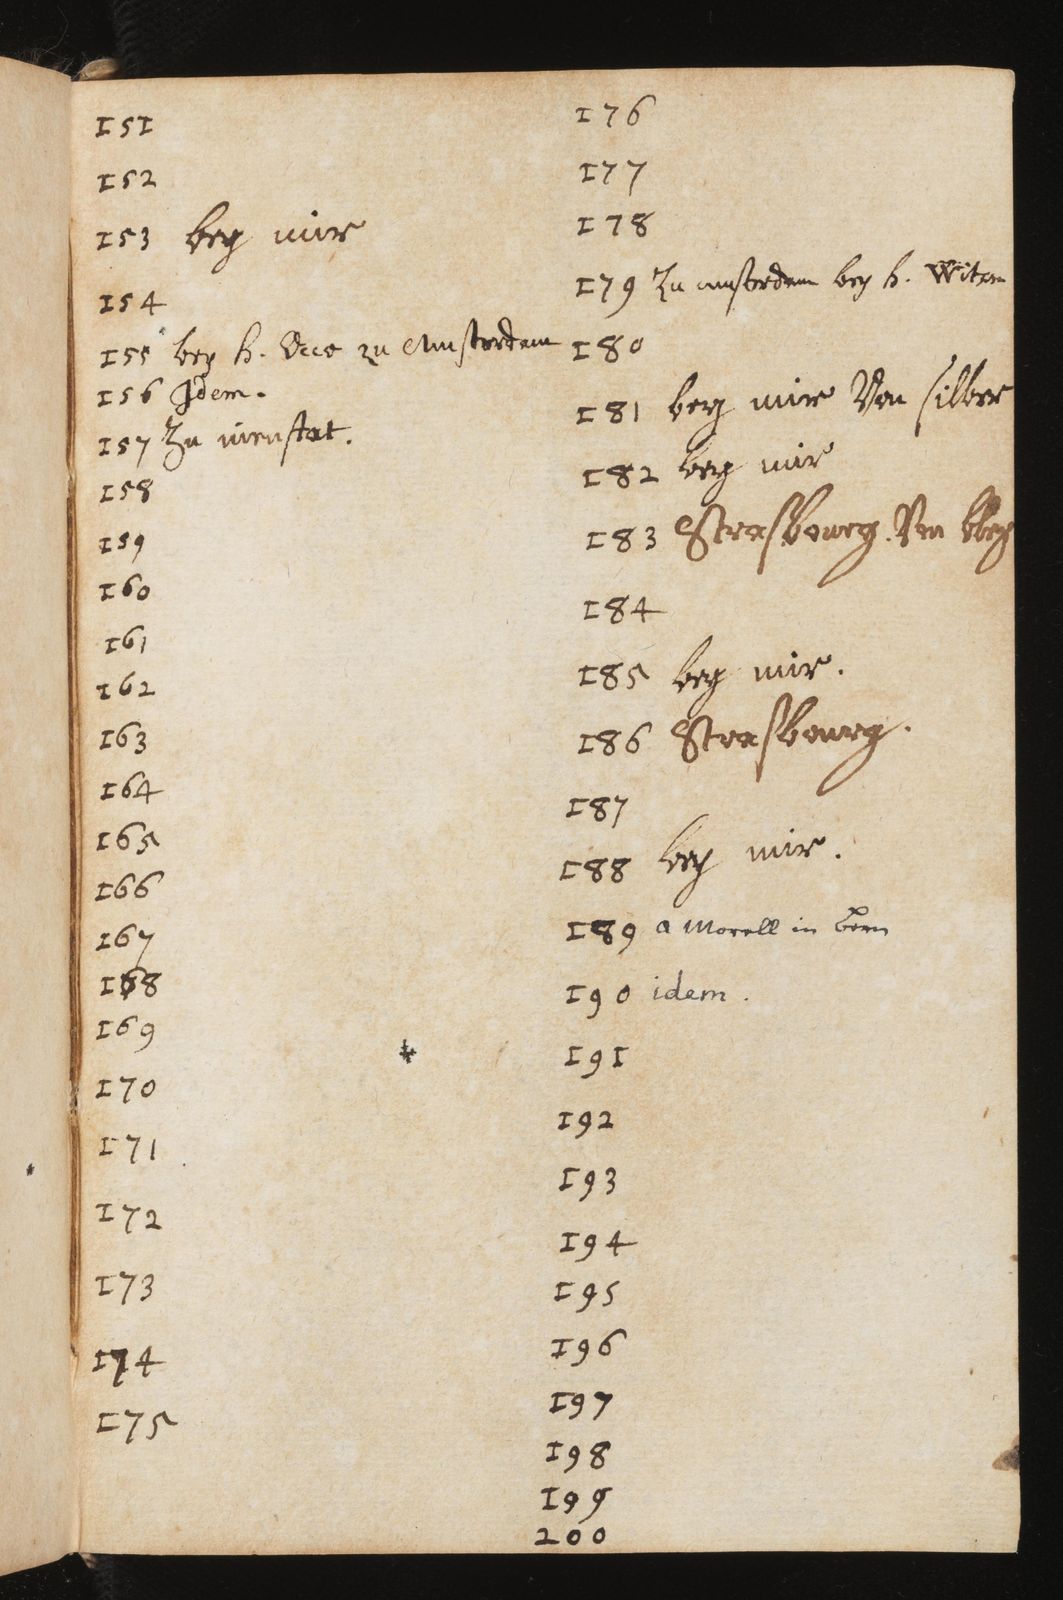 151
152
153 bey mir
154
155 bey h. Occo zu Amsterdam
156 Idem.
157 Zu nieustat.
158
159
160
161
162
163
164
165
166
167
168
169
170
171
172
173
174
175
176
177
178
179 Zu amsterdam bey h. Witzen
180
181 bey mir Von silber
182 bey mir
183 Strasbourg. Von
184
185 bey mir.
186 Strasbourg.
187
188 bey mir.
189 a Morell in bern
190 idem.
191
192
193
194
195
196
197
198
199
200